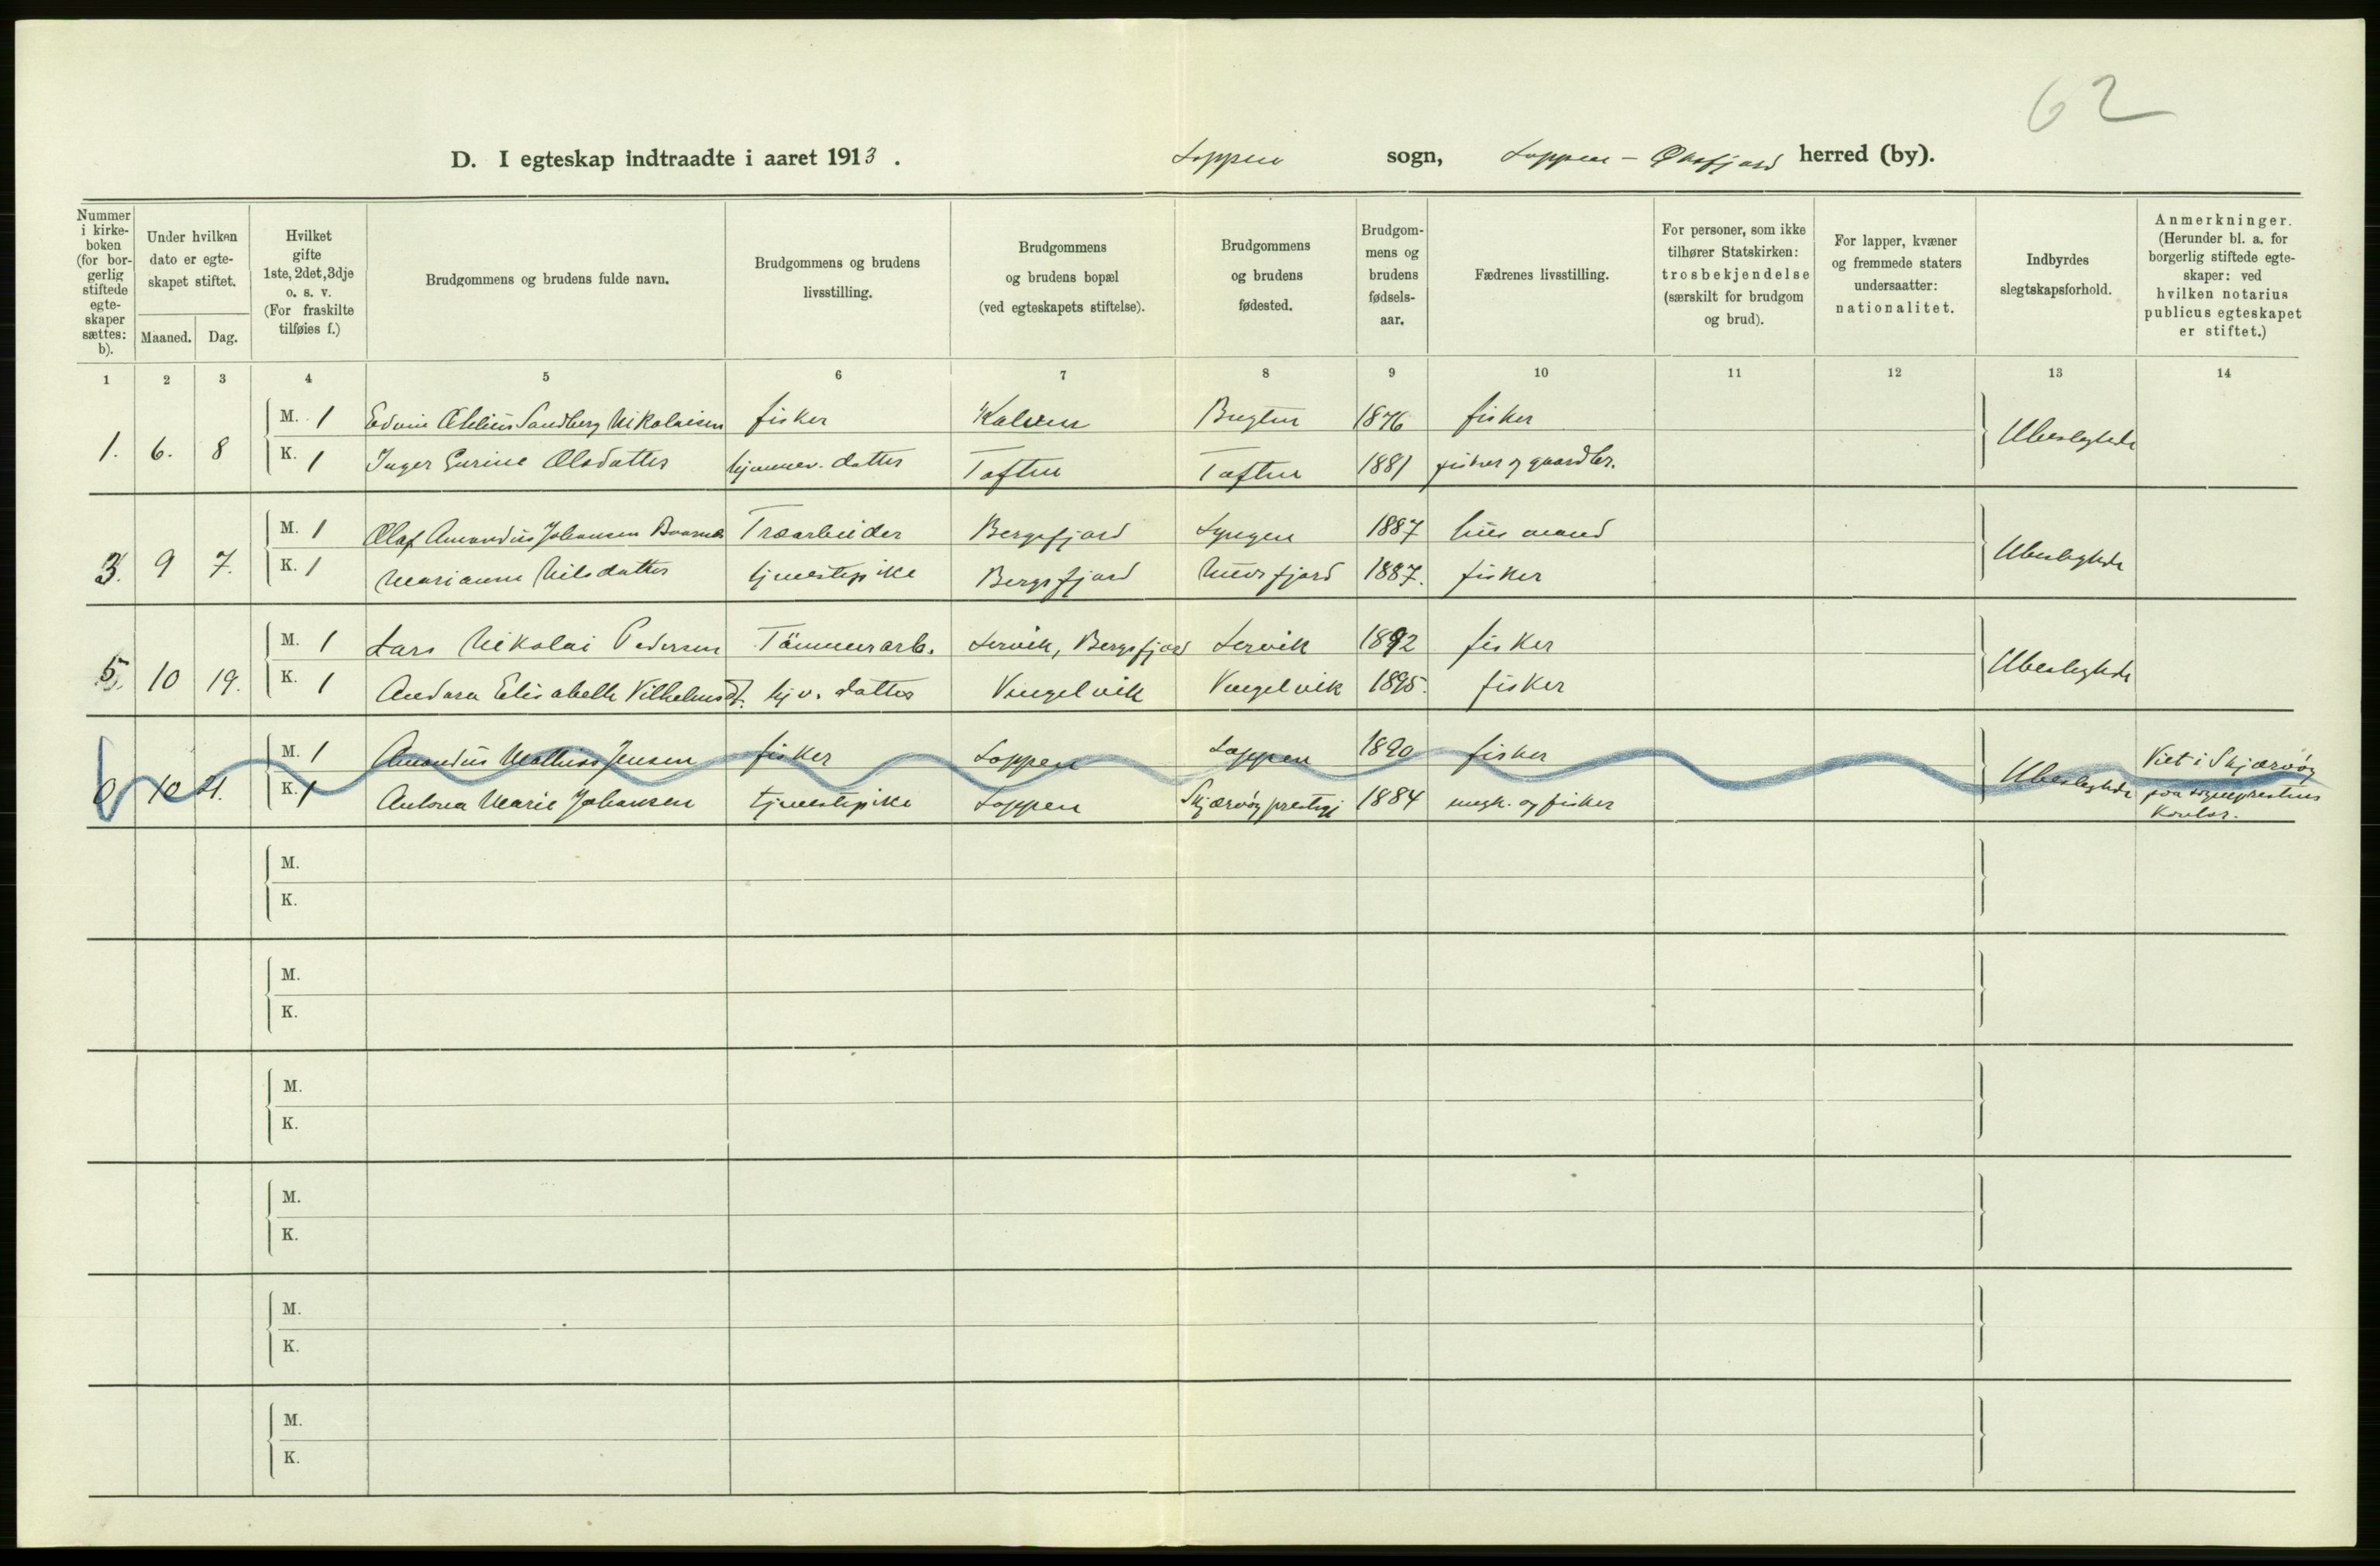 62
D. I egteskap indtraadte i aaret 1913. Loppen sogn, Loppen - Øksfjord herred (by).
Nummer i kirke-boken (for bor-gerlig stiftede egte-skaper sættes: b).
Under hvilken dato er egte-skapet stiftet.
Maaned. Dag.
Hvilket gifte 1ste, 2det, 3dje o. s. v. (For fraskilte tilføies f.)
Brudgommens og brudens fulde navn.
Brudgommens og brudens livsstilling.
Brudgommens og brudens bopæl (ved egteskapets stiftelse).
Brudgommens og brudens fødested.
Brudgom-mens og brudens fødsels-aar.
Fædrenes livsstilling.
For personer, som ikke tilhører Statskirken: trosbekjendelse (særskilt for brudgom og brud).
For lapper, kvæner og fremmede staters undersaatter: nationalitet.
Indbyrdes slegtskapsforhold.
Anmerkninger. (Herunder bl. a. for borgerlig stiftede egte-skaper: ved hvilken notarius publicus egteskapet er stiftet.)
1 2 3 4 5 6 7 8 9 10 11 12 13 14
M. 1 Edvin Sandberg Nikolaisen fisker 1876 fisker
1. 6. 8 Ubeslegtede
K. 1 Inger Olsdatter hjemmev. datter 1881 fisker og gaardbr.
M. 1 Olaf Amandus Johansen Træarbeider Bergsfjord Lyngen 1887 husmand
3. 9 7. Ubeslegtede
K. 1 Marianne Nilsdatter tjenestepike Bergsfjord 1887. fisker
M. 1 Lars Nikolai Pedersen Tömmerarb. Lervik, Bergsfjord Lervik 1892 fisker
5. 10 19. Ubeslegtede
K. 1 Elisabeth Vilhelmsdt. hj v. datter 1895. fisker
M. 1 Amandus Mathias Jensen fisker Loppen Loppen 1890 fisker Viet i Skjærvøy
6 10 21. Ubeslegtede
K. 1 Antona Marie Johansen tjenestepike Loppen Skjærvøy prestegj 1884 og fisker paa sogneprestens
kontor.
M.
K.
M.
K.
M.
K.
M.
K.
M.
K.
M.
K.